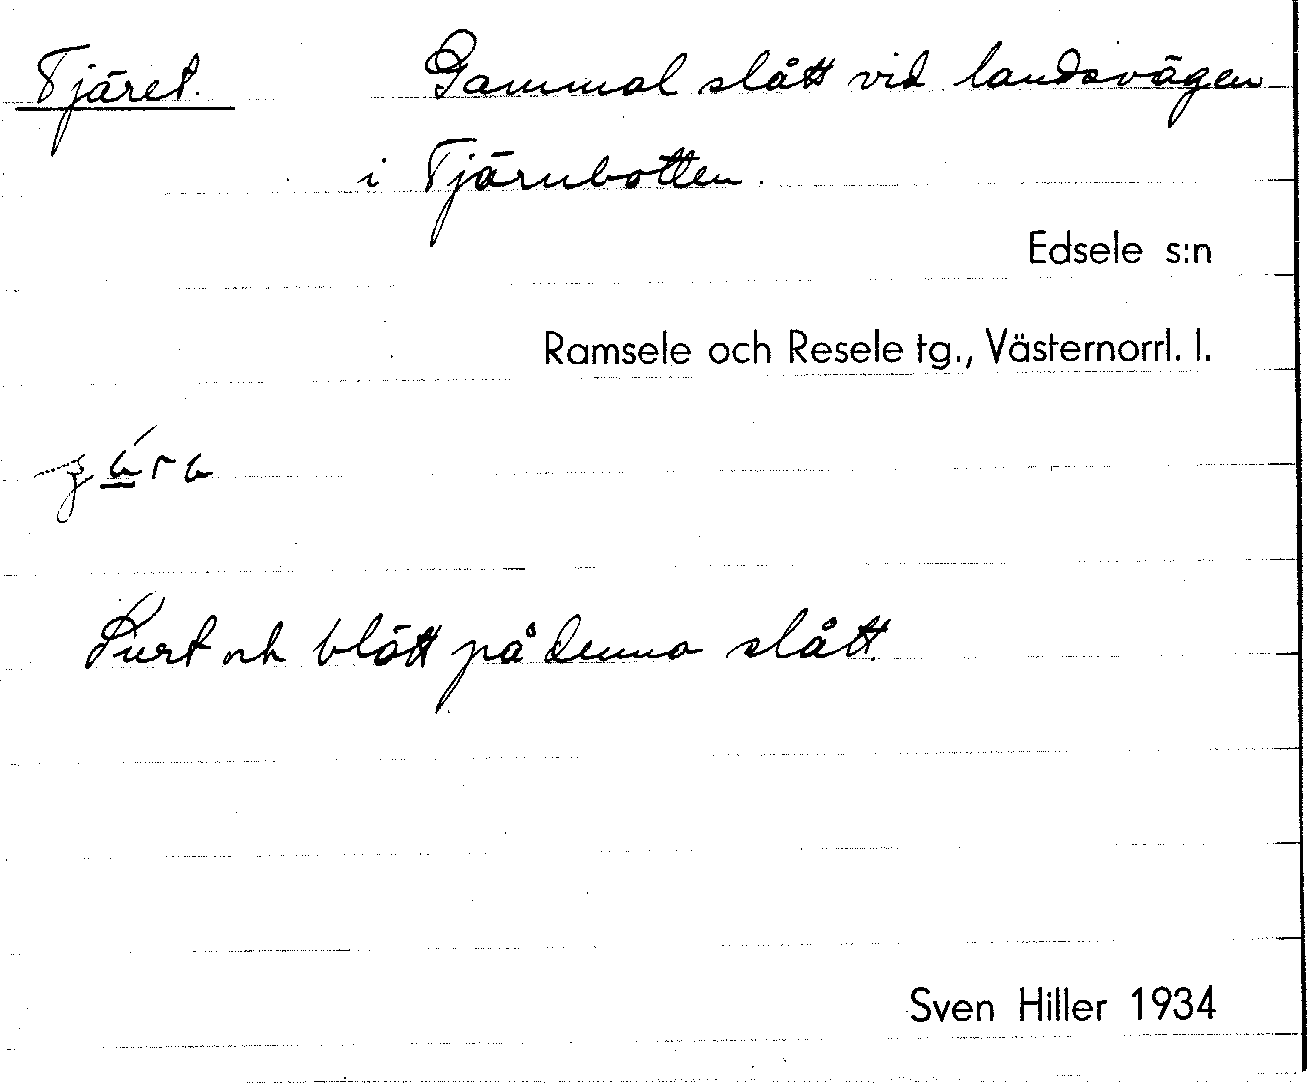 Tjäret. Gammal slått vid landsvägen
i Tjärnbotten.
Edsele s:n
Ramsele och Resele tg., Västernorrl. l.
Surt och blött på denna slått.
Sven Hiller 1934